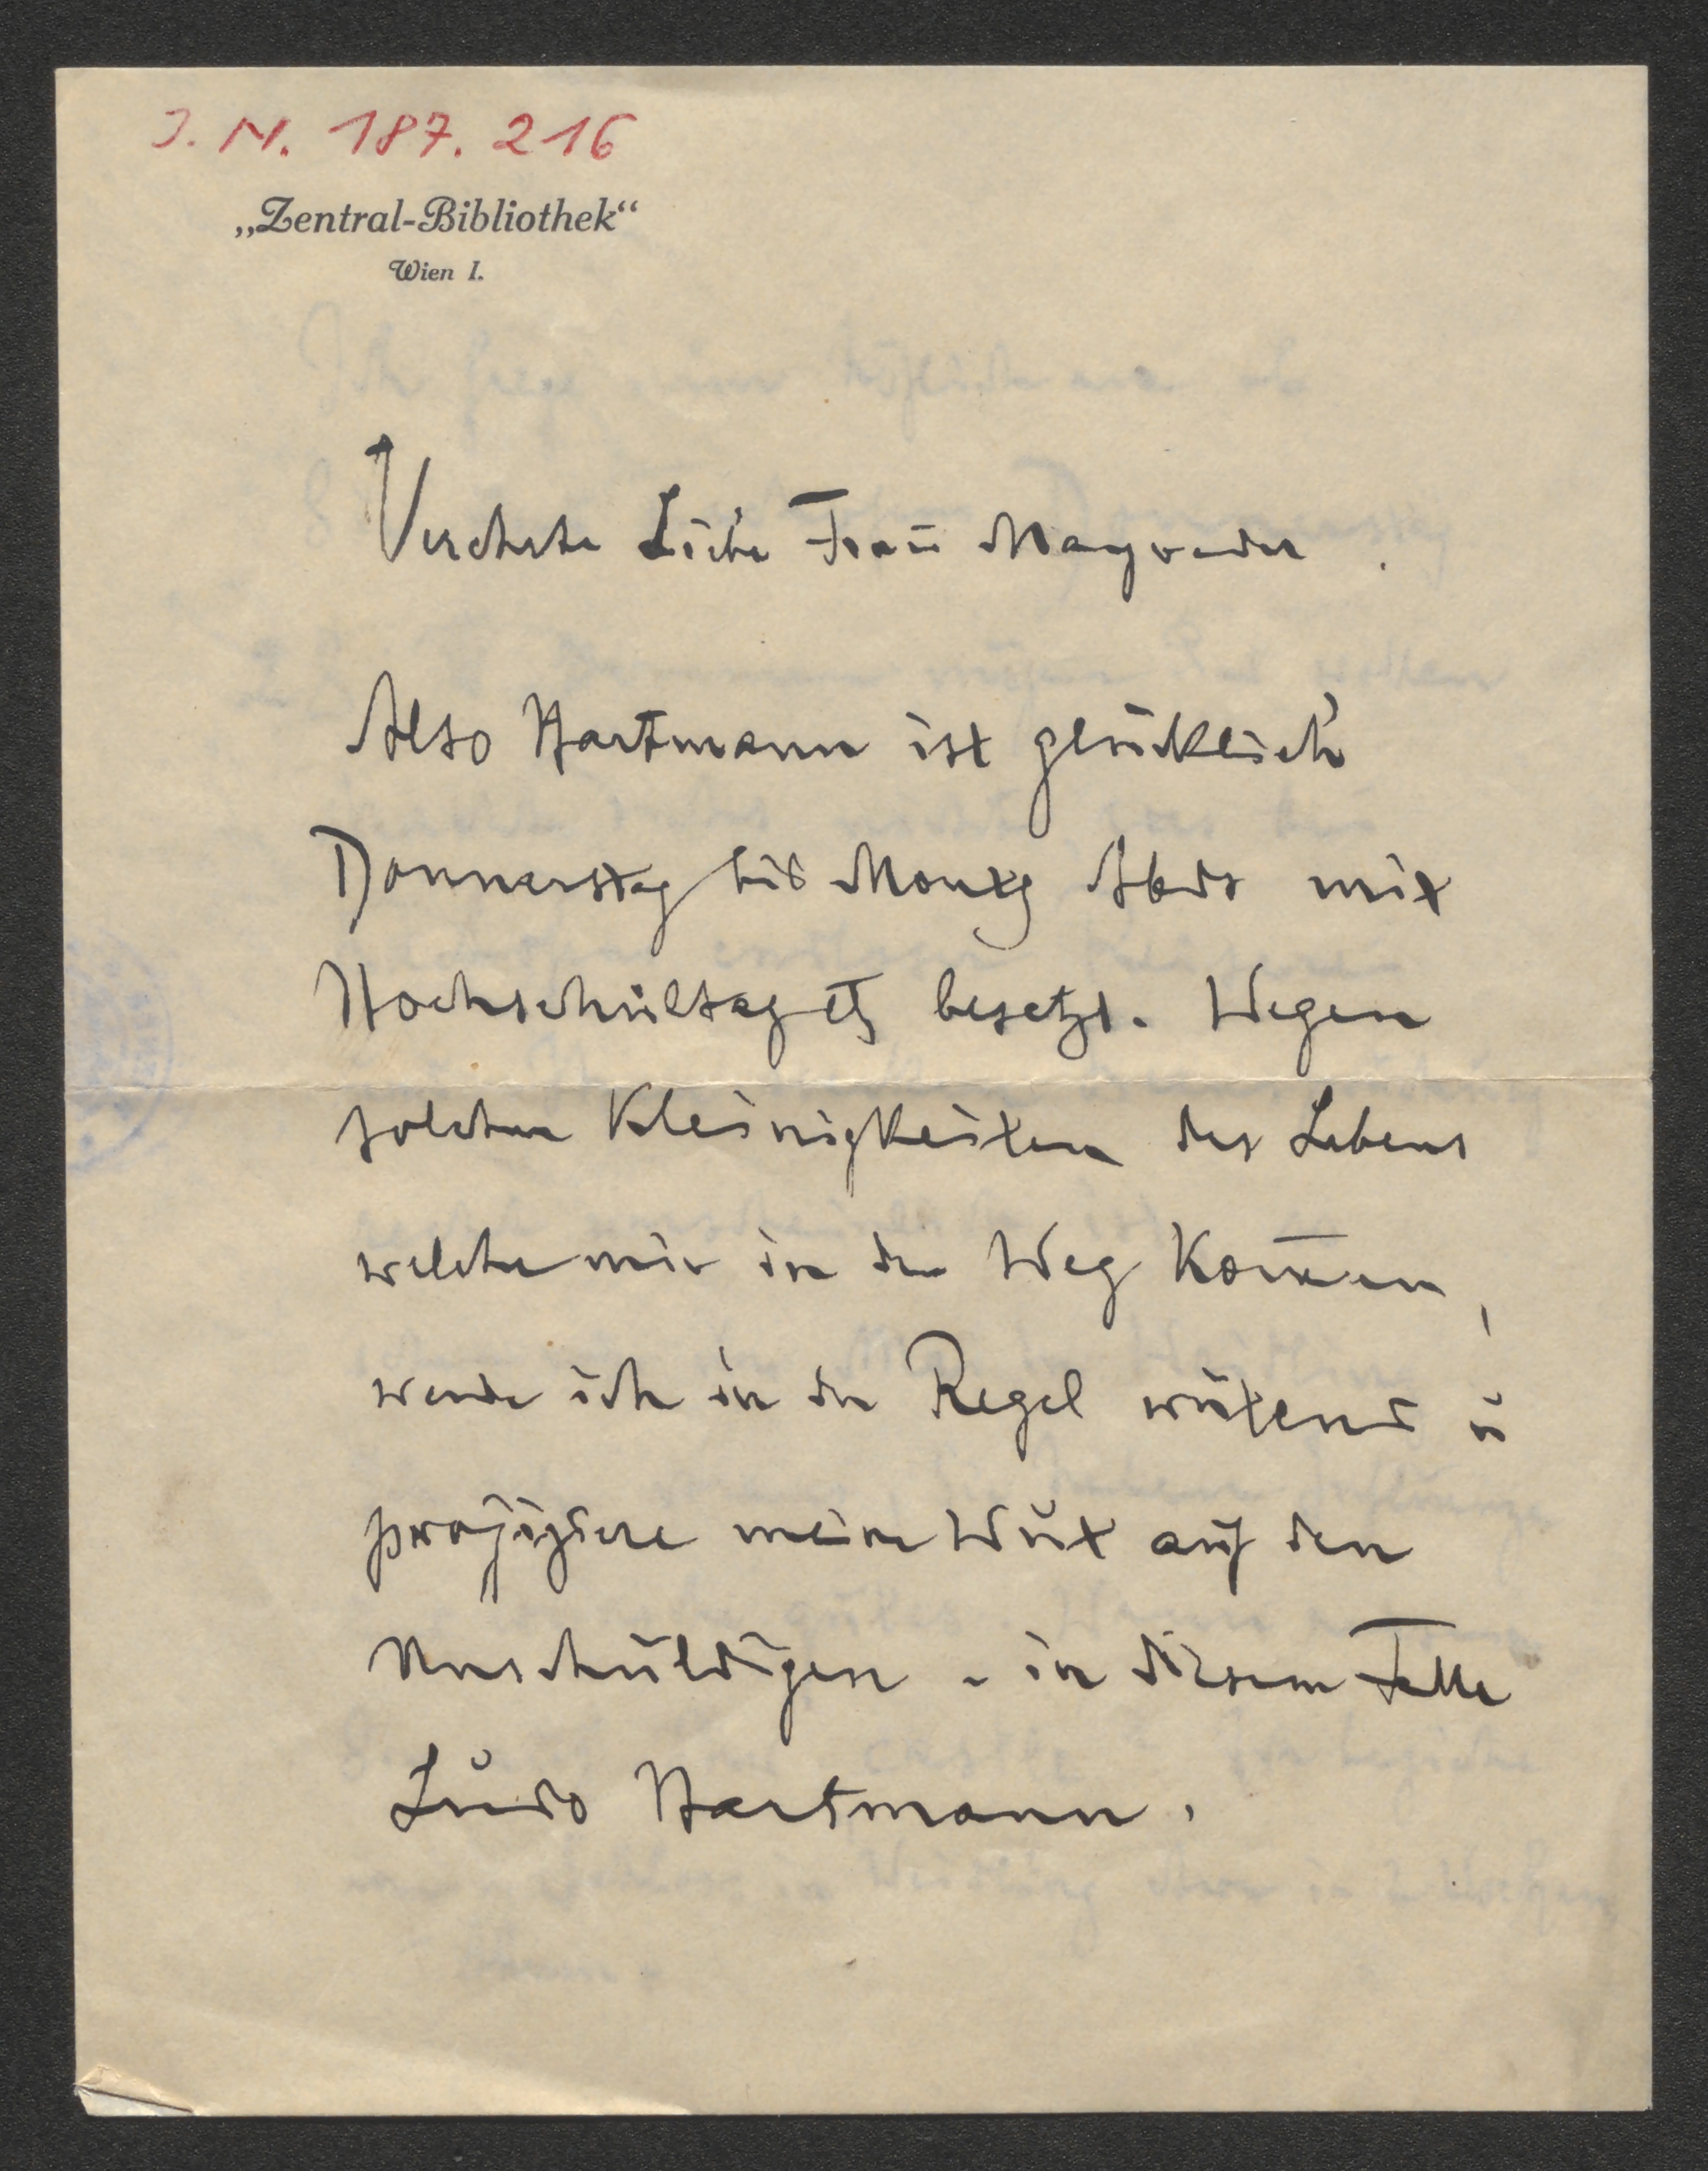 J. N. 187.216
„Zentral-Bibliothek“
Wien I.
Verehrte Liebe Frau Mayreder.
Also Hartmann ist glücklich
Donnerstag bis Montg Abds mit
Hochschultag etz besetzt. Wegen
solchen Kleinigkeiten des Lebens
welche mir in den Weg kom̄en,
werde ich in der Regel wütend u
projiziere meine Wut auf den
Unschuldigen - in diesem Falle
Ludo Hartmann.